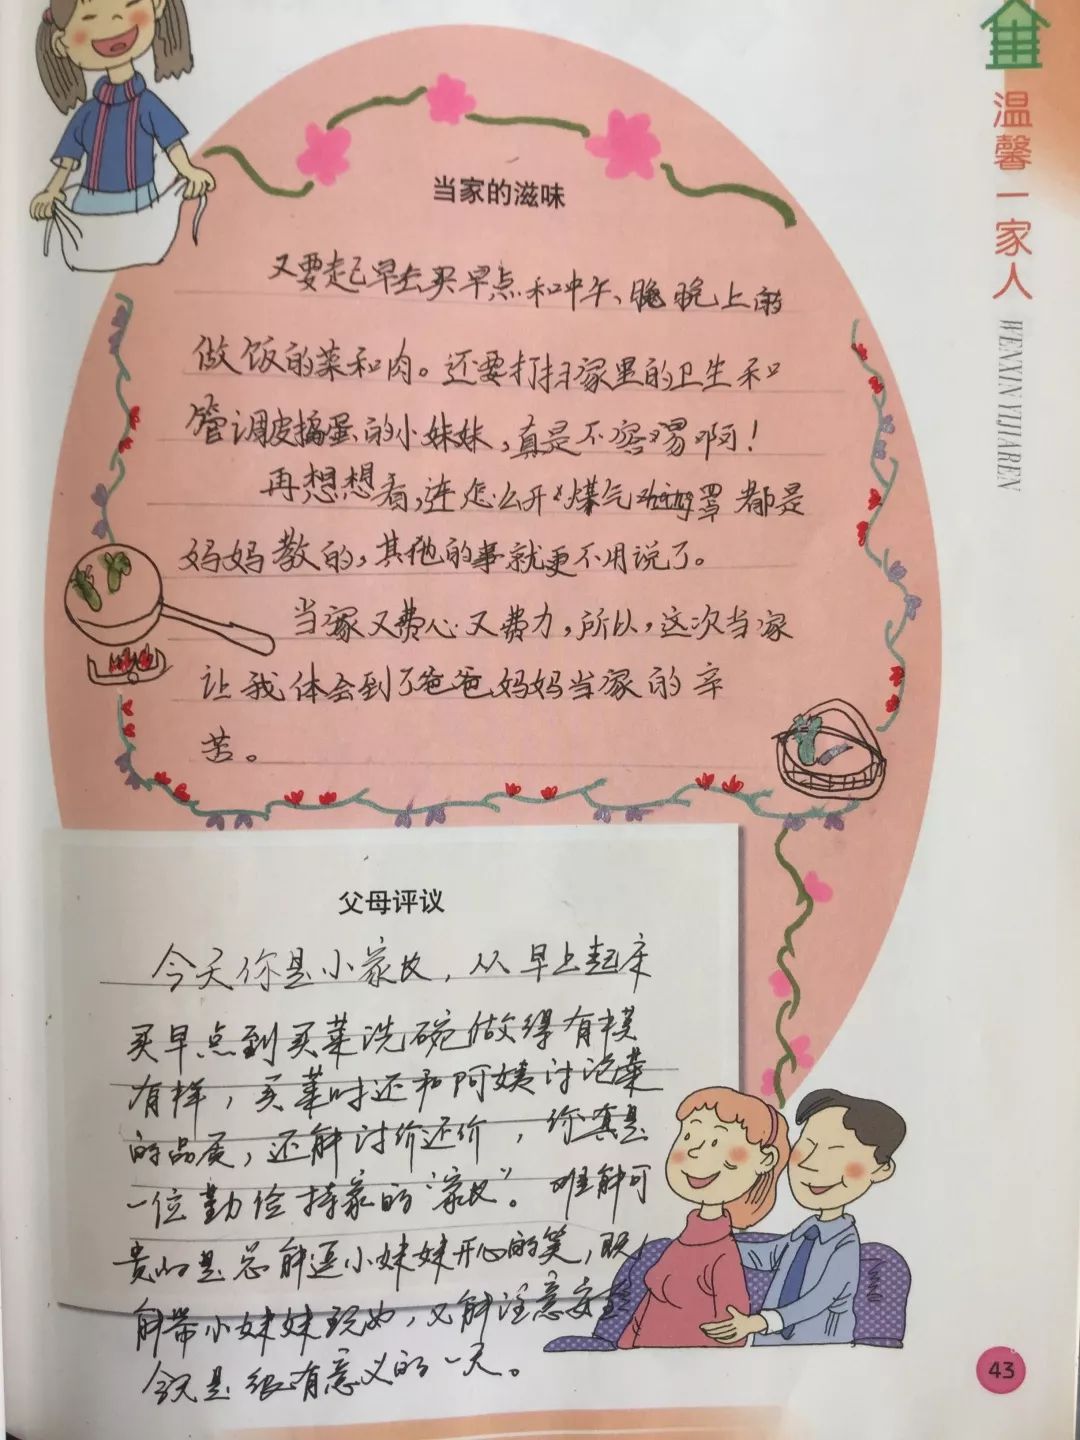 温馨一家人
WENXIN YIJIAREN
当家的滋味
又要起早去买早点和中午、晚上的
做饭的菜和肉。还要打扫家里的卫生和
管调皮捣蛋的小妹妹，真是不容易啊！
再想想看，连怎么开煤气罩都是
妈妈教的，其他的事就更不用说了。
当家又费心又费力，所以，这次当家
让我体会到了爸爸妈妈当家的辛
苦。
父母评议
今天你是小家长，从早上起床
买早点到买菜洗碗做得有模
有样，买菜时还和阿姨讨论菜
的品质，还能讨价还价，你真是
一位勤俭持家的“家长”。难能可
贵的是总能逗小妹妹开心的笑，既
能带小妹妹玩，又能注意安全
今天是很有意义的一天。
43